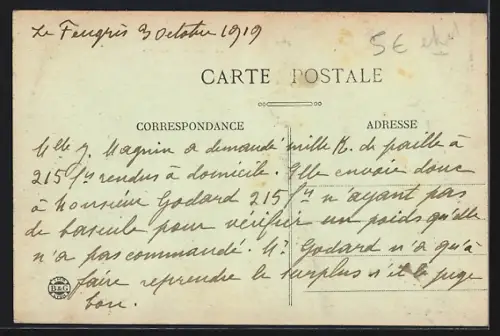 Le Feugrès 3 Octobre 1919
5€
CARTE POSTALE
CORRESPONDANCE
ADRESSE
Mlle J. Magnin a demandé mille K. de paille à
215 frs rendus à domicile. Elle envoie donc
à Monsieur Godard 215 frs n'ayant pas
de bascule pour vérifier un poids qu'elle
n'a pas commandé. Mr Godard n'a qu'à
faire reprendre le surplus s'il le juge
bon.
B&G